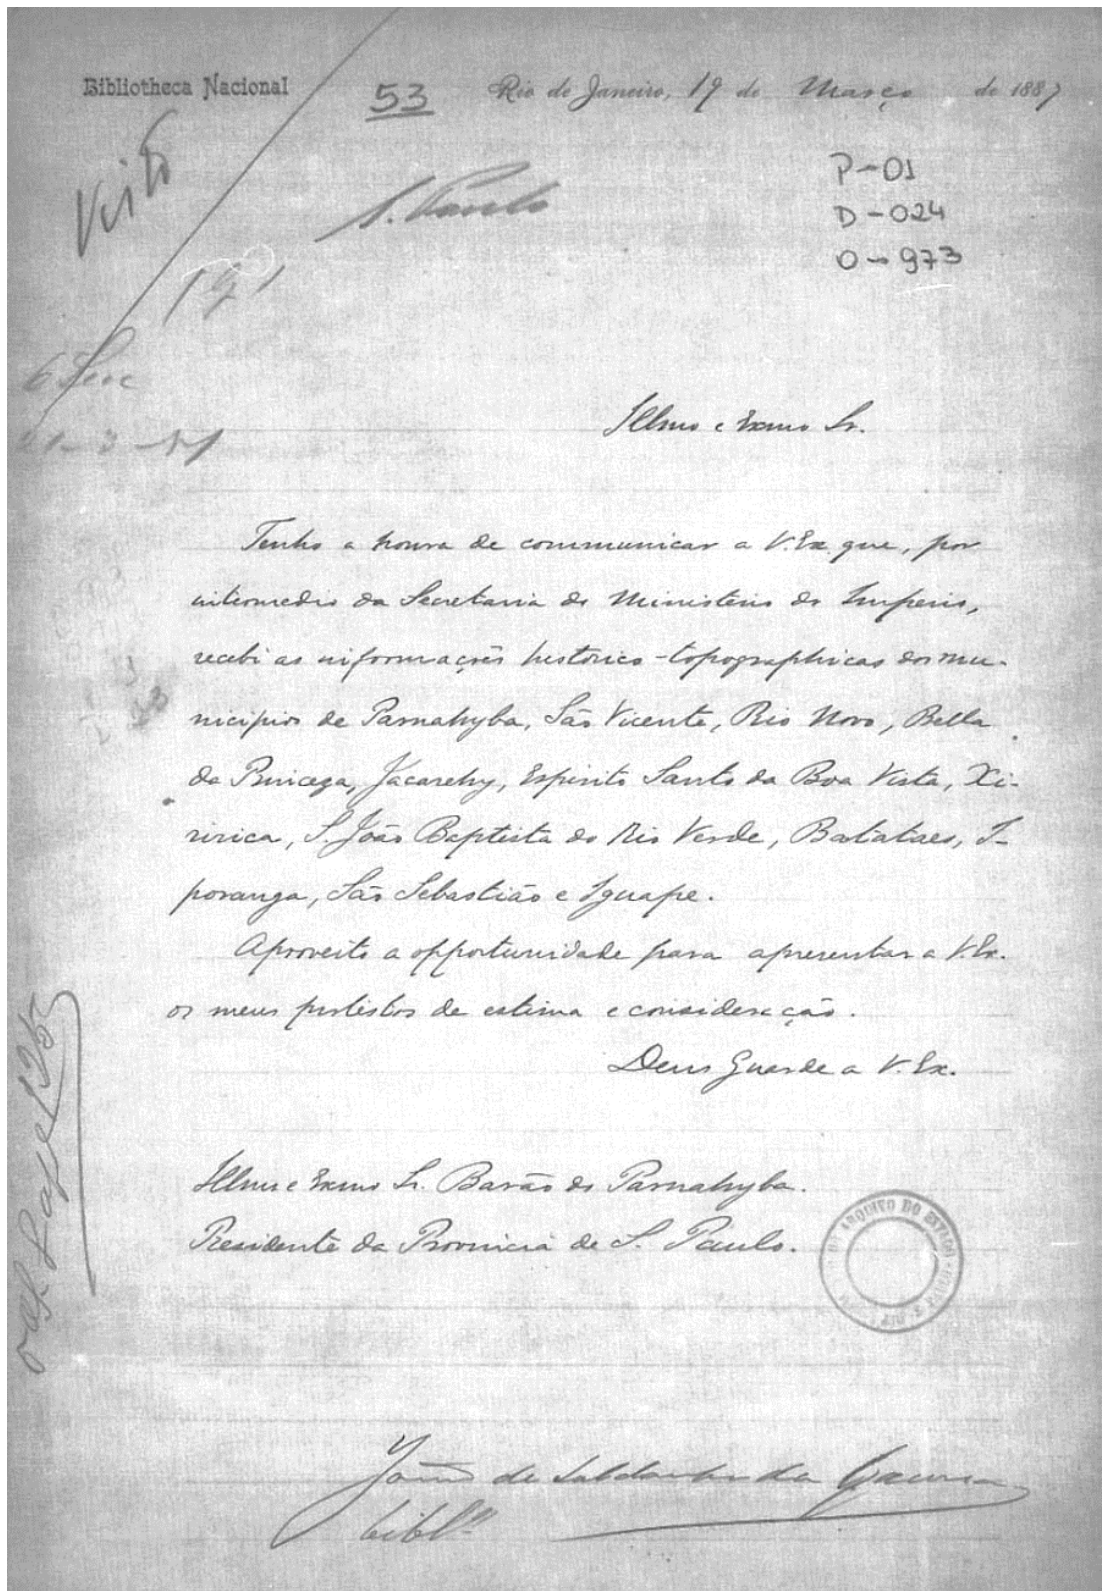 Bibliotheca Nacional
53
Rio de Janeiro, 19 de Março de 1887
Visto
S. Paulo
P-01
D-024
O-973
6 Sec
21-3-87
Illmo e Exmo Sr.
Tenho a honra de communicar a V. Ex. que, por
intermedio da Secretaria do Ministerio do Imperio,
recebi as informações historico-topographicas dos mu-
nicipios de Parnahyba, São Vicente, Rio Novo, Bella
da Princeza, Jacarehy, Espirito Santo da Boa Vista, Xi-
ririca, S. João Baptista do Rio Verde, Batataes, I-
poranga, São Sebastião e Iguape.
Aproveito a opportunidade para apresentar a V. Ex.
os meus protestos de estima e consideração.
Deus Guarde a V. Ex.
Illmo e Exmo Sr. Barão do Parnahyba.
Presidente da Provincia de S. Paulo.
ARQUIVO DO ESTADO
João de Saldanha da Gama
bibl.º